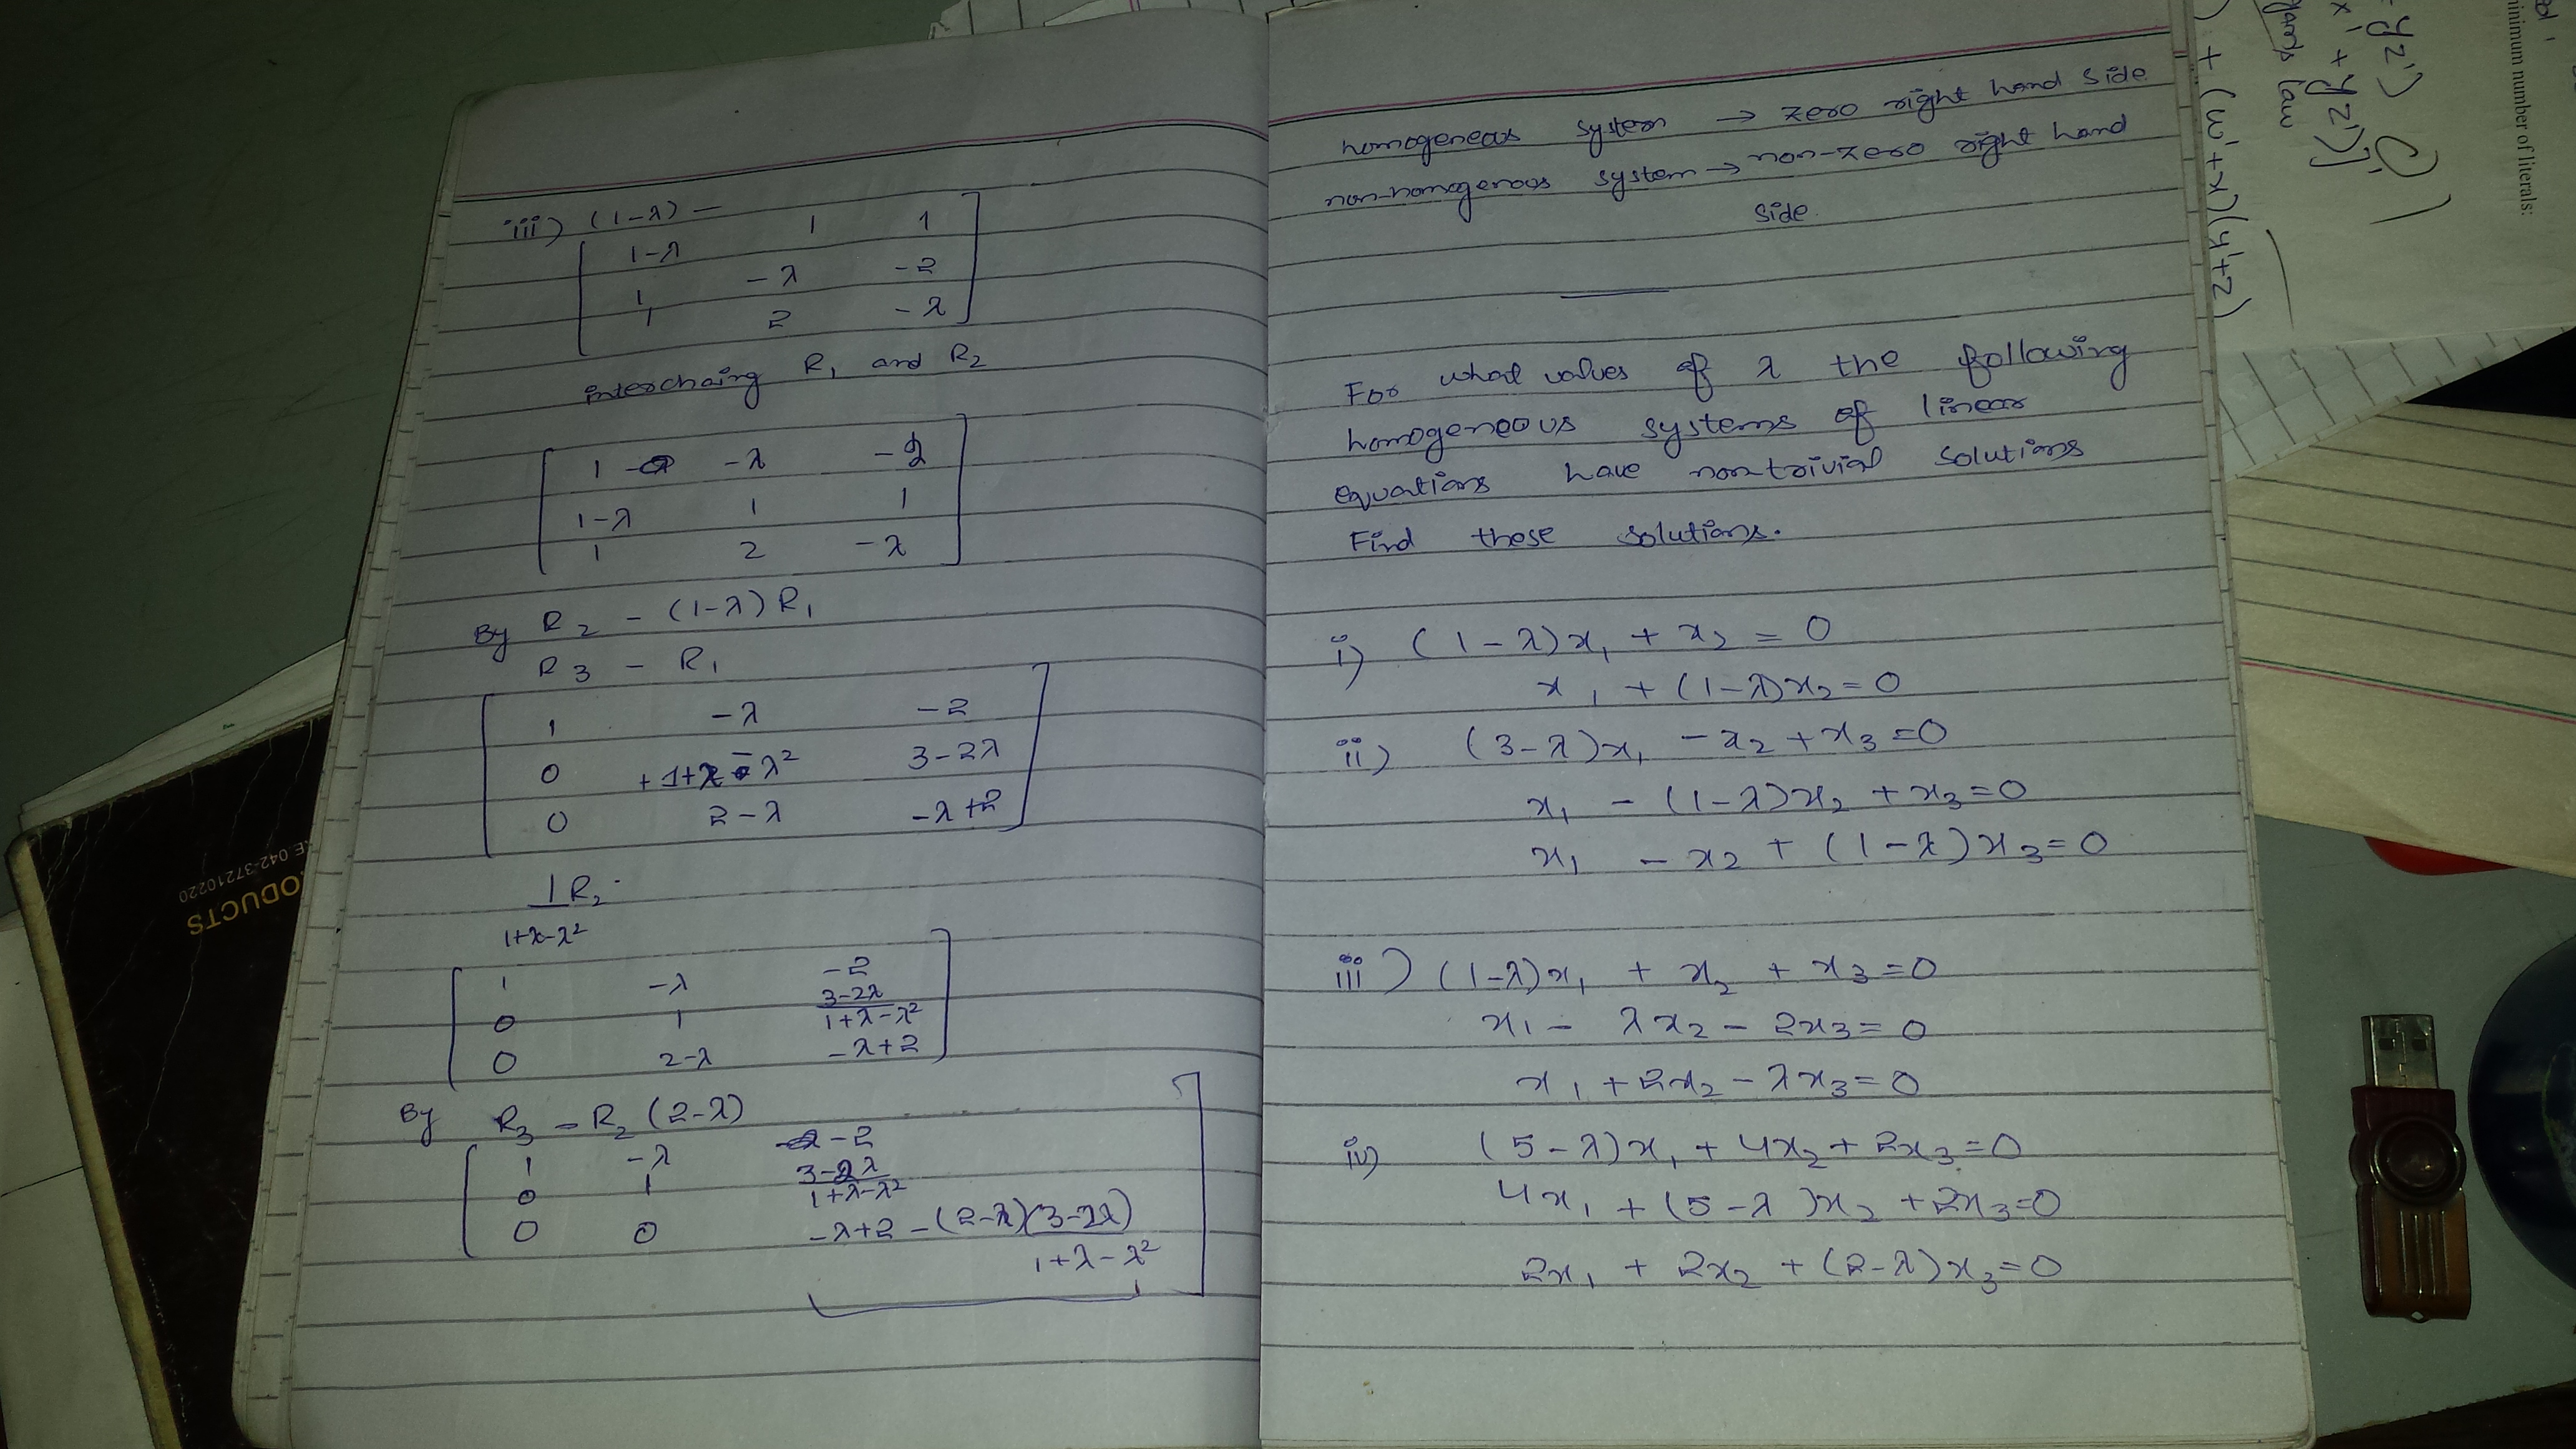 iii) (1-λ) -
1-λ 1 1
1 -λ -2
1 2 -λ
interchaing R₁ and R₂
1 -λ -2
1-λ 1 1
1 2 -λ
By R₂ - (1-λ) R₁
R₃ - R₁
1 -λ -2
0 +1+λ-λ² 3-2λ
0 2-λ -λ+2
1 R₂
1+λ-λ²
1 -λ -2
0 1 3-2λ
1+λ-λ²
0 2-λ -λ+2
By R₃ - R₂ (2-λ)
1 -λ -2
0 1 3-2λ
1+λ-λ²
0 0 -λ+2 -(2-λ)(3-2λ)
1+λ-λ²
homogeneas system → zero right hand side
non-homogenous system → non-zero right hand
side
For what values of λ the following
homogeneous systems of linear
equations have nontrivial solutions
Find these solutions.
i) (1-λ)x₁ + x₂ = 0
x₁ + (1-λ)x₂ = 0
ii) (3-λ)x₁ - x₂ + x₃ = 0
x₁ - (1-λ)x₂ + x₃ = 0
x₁ - x₂ + (1-λ)x₃ = 0
iii) (1-λ)x₁ + x₂ + x₃ = 0
x₁ - λx₂ - 2x₃ = 0
x₁ + 2x₂ - λx₃ = 0
iv) (5-λ)x₁ + 4x₂ + 2x₃ = 0
4x₁ + (5-λ)x₂ + 2x₃ = 0
2x₁ + 2x₂ + (2-λ)x₃ = 0
inimum number of literals:
= yz')
x' + yz')]'
law
) + (w'+x)(y'+z)
E. 042-37210220
ODUCTS